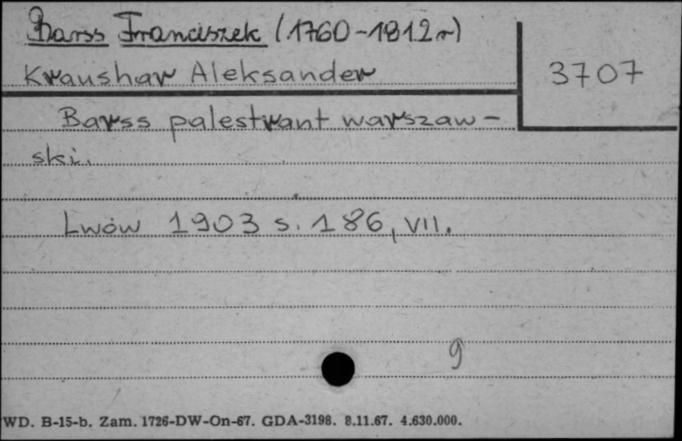 Barss Franciszek (1760-1812r)
Kraushar Aleksander
3707
Barss palestrant warszaw-
ski.
Lwów 1903 s. 186, VII.
9
WD. B-15-b. Zam. 1726-DW-On-67. GDA-3198. 8.11.67. 4.630.000.